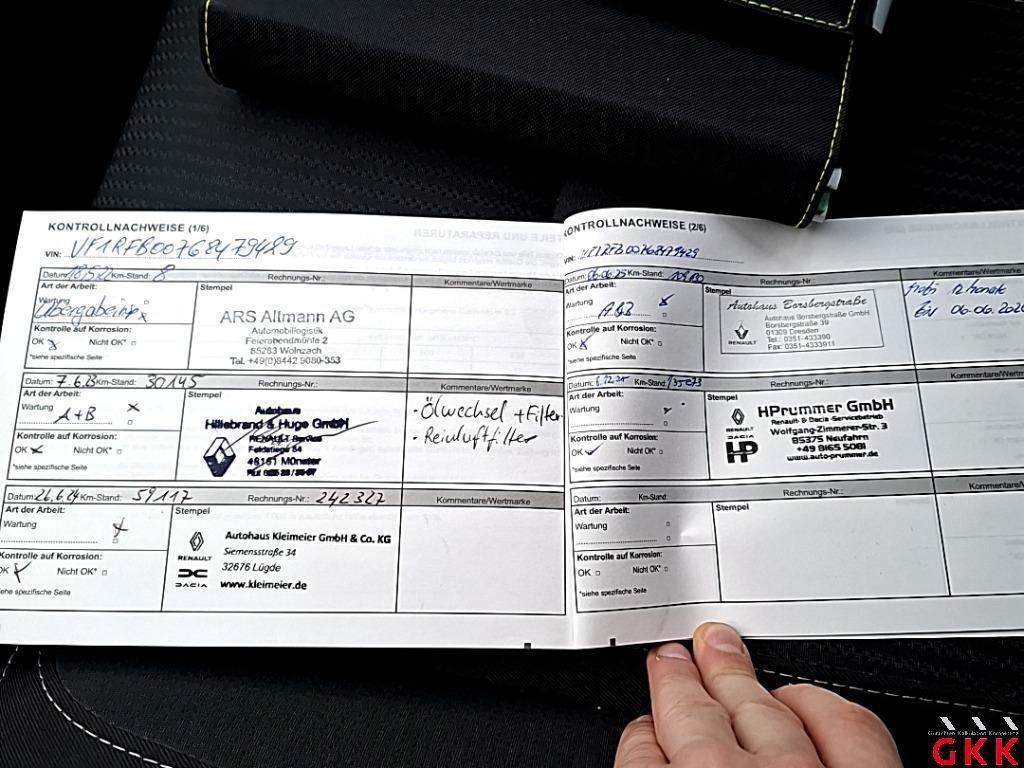 KONTROLLNACHWEISE (1/6)
VIN: VF1RFB00768479489
Datum: 18.5.22 Km-Stand: 8 Rechnungs-Nr.: Kommentare/Wertmarke
Art der Arbeit: Stempel
Wartung
Übergabeinsp x
Kontrolle auf Korrosion:
OK x Nicht OK*
*siehe spezifische Seite
ARS Altmann AG
Automobillogistik
Feierabendmühle 2
85283 Wolnzach
Tel. +49(0)8442 9080-353
Datum: 7.6.23 Km-Stand: 30145 Rechnungs-Nr.: Kommentare/Wertmarke
Art der Arbeit: Stempel
Wartung x
A+B
Kontrolle auf Korrosion:
OK x Nicht OK*
*siehe spezifische Seite
Autohaus
Hillebrand & Huge GmbH
RENAULT
48151 Münster
- Ölwechsel + Filter
- Reinluftfilter
Datum: 26.6.24 Km-Stand: 59117 Rechnungs-Nr.: 242327 Kommentare/Wertmarke
Art der Arbeit: Stempel
Wartung x
Kontrolle auf Korrosion:
OK x Nicht OK*
siehe spezifische Seite
RENAULT
DACIA
Autohaus Kleimeier GmbH & Co. KG
Siemensstraße 34
32676 Lügde
www.kleimeier.de
KONTROLLNACHWEISE (2/6)
VIN: VF1RFB00768479489
Datum: 06.06.25 Km-Stand: Rechnungs-Nr.: Kommentare/Wertmarke
Art der Arbeit: Stempel
Wartung x
Kontrolle auf Korrosion:
OK x Nicht OK*
*siehe spezifische Seite
RENAULT
Autohaus Borsbergstraße
Autohaus Borsbergstraße GmbH
Borsbergstraße 39
01309 Dresden
Tel.: 0351-433390
Fax: 0351-4333911
Mobi
06.06.202
Datum: Km-Stand: Rechnungs-Nr.: Kommentare/Wertm
Art der Arbeit: Stempel
Wartung
Kontrolle auf Korrosion:
OK Nicht OK*
*siehe spezifische Seite
RENAULT
DACIA
HP
HPrummer GmbH
Renault & Dacia Servicebetrieb
Wolfgang-Zimmerer-Str. 3
85375 Neufahrn
+49 8165 5081
www.auto-prummer.de
Datum: Km-Stand: Rechnungs-Nr.: Kommentare/W
Art der Arbeit: Stempel
Wartung
Kontrolle auf Korrosion:
OK Nicht OK*
*siehe spezifische Seite
Gutachten Kalkulation Kompetenz
GKK